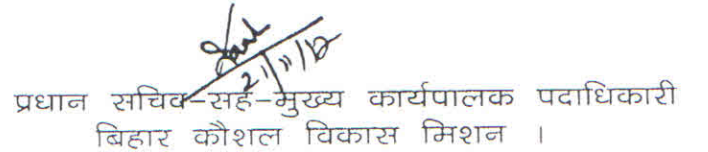 प्रधान सचिव-सह-मुख्य कार्यपालक पदाधिकारी
बिहार कौशल विकास मिशन ।